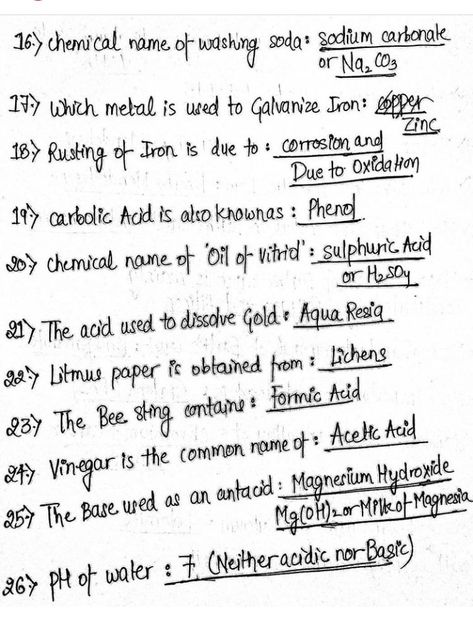 16.> chemical name of washing soda: sodium carbonate
or Na2 CO3
17.> Which metal is used to Galvanize Iron: copper
Zinc
18> Rusting of Iron is due to : corrosion and
Due to Oxidation
19> carbolic Acid is also known as : Phenol
20> chemical name of 'Oil of vitriol': sulphuric Acid
or H2SO4
21> The acid used to dissolve Gold: Aqua Resia
22.> Litmus paper is obtained from : Lichens
23.> The Bee sting contains : Formic Acid
24> Vinegar is the common name of : Acetic Acid
25> The Base used as an antacid : Magnesium Hydroxide
Mg(OH)2 or Milk of Magnesia
26> pH of water : 7 (Neither acidic nor Basic)